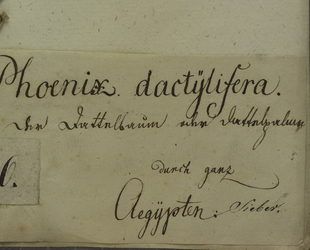 Phoenix dactÿlifera.
Der Dattelbaum oder Dattelpalme
durch ganz
Aegÿpten. Sieber.